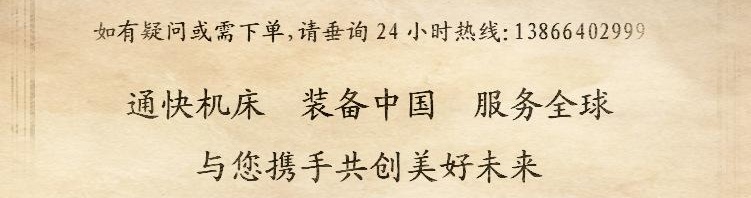 如有疑问或需下单,请垂询24小时热线:13866402999
通快机床 装备中国 服务全球
与您携手共创美好未来